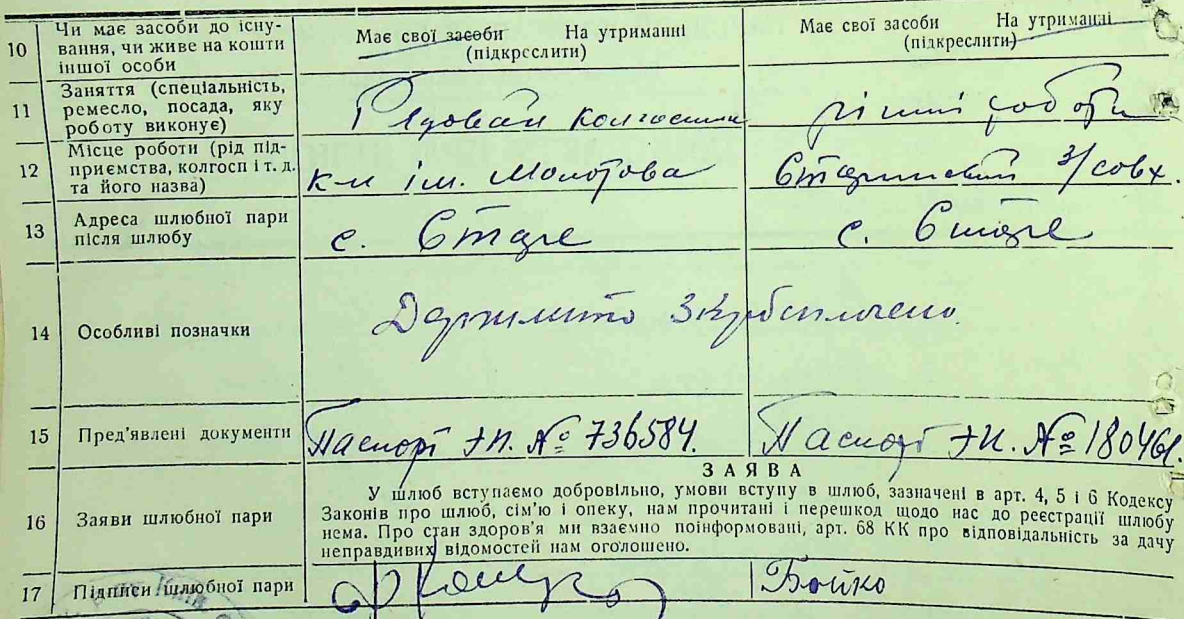 10 Чи має засоби до існу-
вання, чи живе на кошти
іншої особи
Має свої засоби На утриманні
(підкреслити)
Має свої засоби На утриманні
(підкреслити)
11 Заняття (спеціальність,
ремесло, посада, яку
роботу виконує)
Рядовий колгоспник
різні роботи
12 Місце роботи (рід під-
приємства, колгосп і т. д.
та його назва)
к-п ім. Молотова
Старинський з/совх.
13 Адреса шлюбної пари
після шлюбу
с. Старе
с. Старе
14 Особливі позначки
Держмито 3 крб сплачено
15 Пред'явлені документи
Паспорт № 736584.
Паспорт № 180461.
ЗАЯВА
16 Заяви шлюбної пари
У шлюб вступаємо добровільно, умови вступу в шлюб, зазначені в арт. 4, 5 і 6 Кодексу
Законів про шлюб, сім'ю і опеку, нам прочитані і перешкод щодо нас до реєстрації шлюбу
нема. Про стан здоров'я ми взаємно поінформовані, арт. 68 КК про відповідальність за дачу
неправдивих відомостей нам оголошено.
17 Підписи шлюбної пари
Бойко